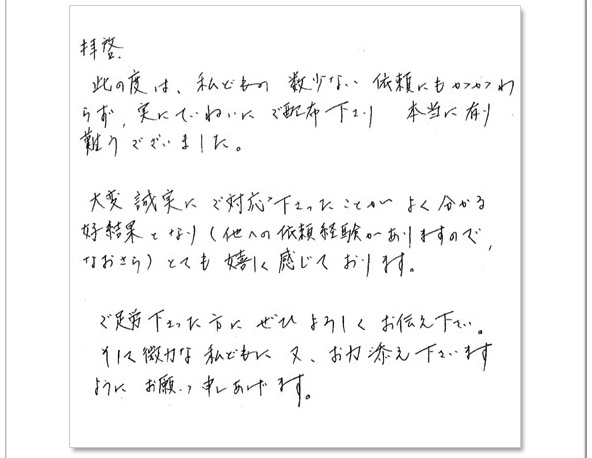 拝啓、
此の度は、私どもの 数少ない 依頼にもかかわ
らず、実にていねいに ご配布 下さり 本当に有り
難うございました。
大変 誠実に ご対応下さったことが よく分かる
好結果となり（他への依頼経験がありますので、
なおさら）とても 嬉しく感じて おります。
ご足労下さった方に ぜひ よろしく お伝え下さい。
そして微力な 私どもに 又、お力添え下さいます
ように お願い申しあげます。